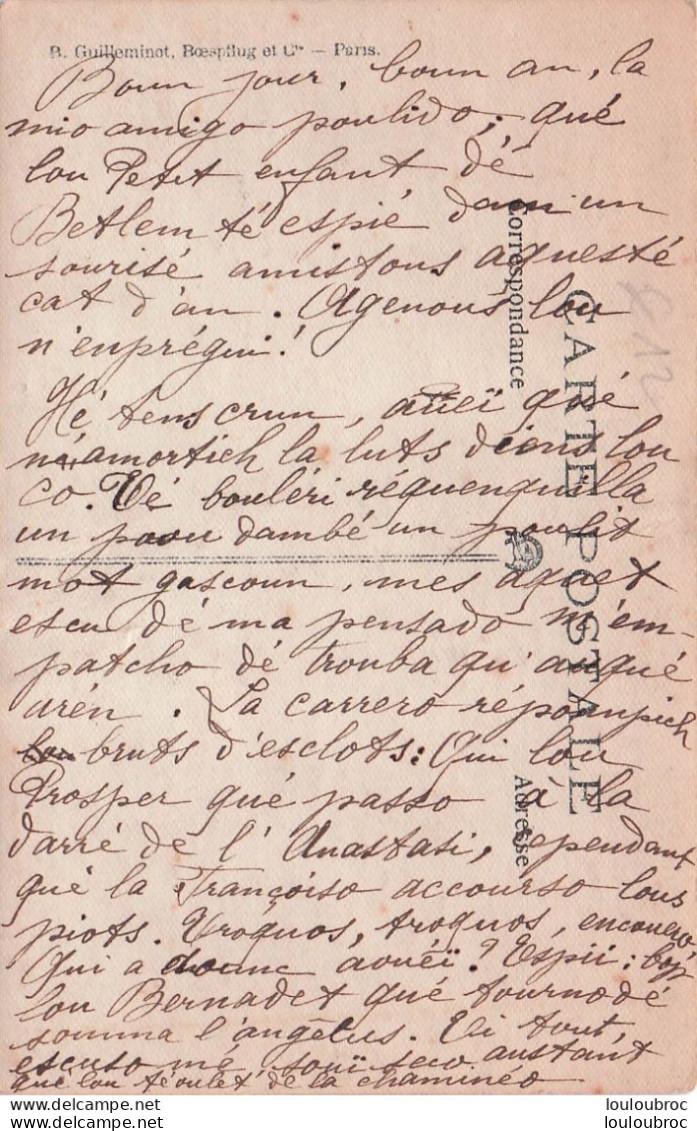 B. Guilleminot, Bœspflug et Cie — Paris.
Boun jour, boun an, la
mio amigo poulido; qué
lou Petit enfant dé
Betlem té espié dam un
sourisé amistous aquesté
cat d'an. Agenous lou
n'enprégui!
Hé tens crun, auëï qué
n'amortich la luts diens lou
co. Té bouléri réquenquilla
un paou dambé un poulit
mot gascoun, mes aquet
escu dé ma pensado m'em-
patcho dé trouba qu'auqué
arén. La carrero réponpich
bruts d'esclots: Qui lou
Prosper qué passo à la
darré dé l'Anastasi, cependant
qué la Françoiso accourso lous
piots. Troquos, troquos, encouero
Qui a dounc aouéï? Espii:
lou Bernadet qué tourno dé
sounna l'angélus. Ei tout,
escuso mé, souï seco austant
que lou téoulet de la chaminéo
Correspondance
CARTE POSTALE
Adresse
louloubroc
louloubroc